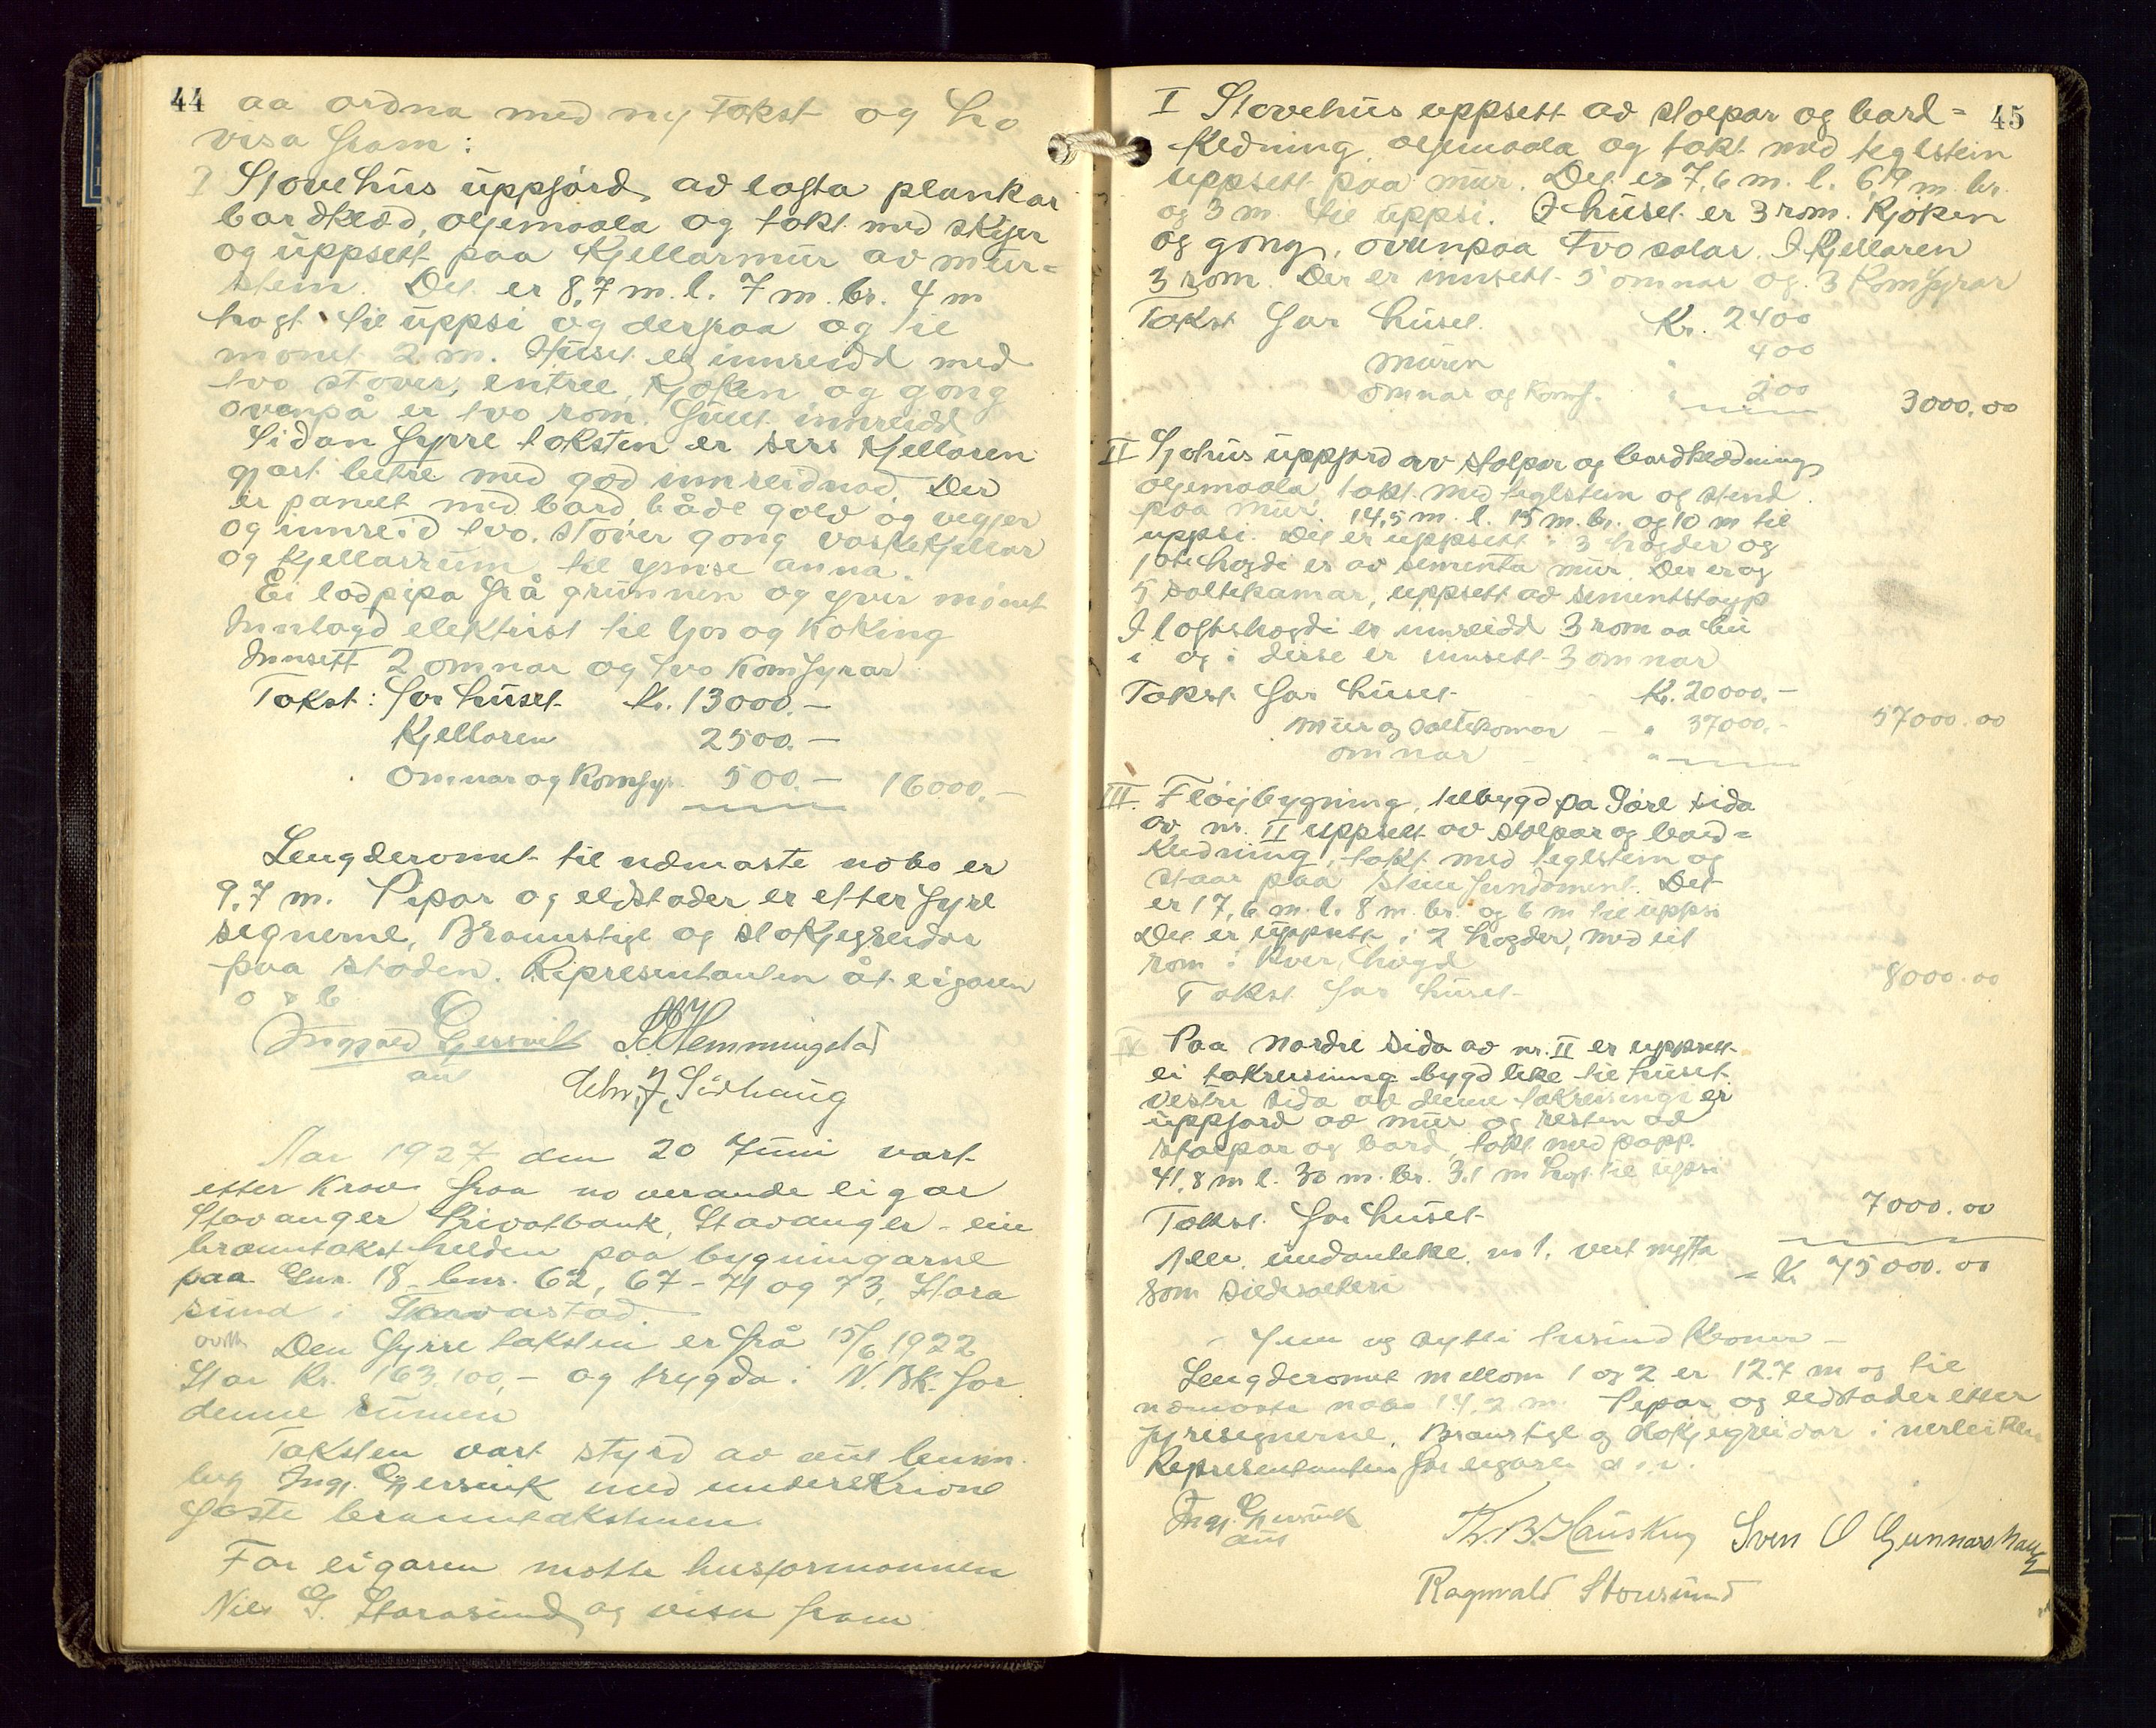 44
aa ordna med ny takst og ho
visa fram:
I Stovehus uppførd ad lafta plankar
bordklæd, oljemaala og tekt med skifer
og uppsett paa Kjellarmur av mur-
stein. Det er 8,7 m. l. 7 m. br. 4 m
høgt til uppsi og derfraa og til
mønet 2 m. Huset er innreidd med
tvo stover, entree, kjøken og gong
ovanpå er tvo rom. Huset innreidd
Sidan fyrre taksten er sers Kjellaren
gjort betre med god innreidnad. Der
er panelt med bord, både golv og vegjer
og innreid tvo stover gong vaskekjellar
og Kjellarrum til ymse anna.
Ei lodpipa frå grunnen og yver mønet
Innlagd elektrisk til ljos og koking
Innsett 2 omnar og tvo komfyrar
Takst: for huset Kr. 13000.-
Kjellaren 2500.-
Omnar og Komfyr. 500.- 16000.-
Lengderomet til næmaste nabo er
9.7 m. Pipar og eldstader er etter fyre
segnerne, Brannstige og sløkjegreidor
paa staden. Representanten åt eigaren
o s b
Ingvald Gjersvik S. Hemmingstad
aut
Chr. J. Sidhaug
Aar 1927 den 20 Juni vart
etter Krav fraa noverande eigar
Stavanger Privatbank, Stavanger - ein
branntakst helden paa bygningarne
paa Gnr. 18 bnr. 62, 67-71 og 73, Stora
sund i Torvastad.
Den fyrre taksten er frå 15/6 1922
Stor Kr. 163.100,- og trygda i N. Bk. for
denne sumen
Taksten vart styrd av aut lensm.
Ing. Gjersvik med underskrivne
faste branntakstmenn.
For eigaren møtte husformannen
Nils G. Storasund og visa fram
45
I Stovehus uppsett ad stolpar og bord-
kledning, oljemaala og tekt med teglstein
uppsett paa mur. Det er 7,6 m. l. 6,9 m. br.
og 3 m. til uppsi. I huset er 3 rom. Kjøken
og gong, ovanpaa tvo salar. I Kjellaren
3 rom. Der er innsett 5 omnar og 3 Komfyrar
Takst for huset. Kr. 2400
muren " 400
omnar og Komf. " 200 3000.00
II Sjøhus uppførd av stolpar og bordkledning
oljemaala, tekt med teglstein og stend
paa mur, 14,5 m. l. 15 m. br. og 10 m til
uppsi. Det er uppsett i 3 høgder og
1ste høgdi er av sementa mur. Der er og
5 saltekamar, uppsett ad sementstøyp
I loftshøgdi er innreidd 3 rom aa bu
i og i disse er innsett 3 omnar
Takst for huset Kr. 20000.-
Mur og saltekamar - " 37000.- 57000.00
omnar "
III. Fløybygning, tilbygd pa Søre sida
av nr. II uppsett av stolpar og bord-
kledning, tekt med teglstein og
staar paa stein fundament. Det
er 17,6 m. l. 8 m. br. og 6 m til uppsi
Det er uppsett i 2 høgder, med eit
rom i kver høgd
Takst for huset 8000.00
IV Paa nordre sida ad nr. II er uppsett
ei takreising bygd like til huset
vestre sida av denne takreisingi er
uppførd ad mur og resten ad
stolpar og bord, tekt med papp.
41,8 m l. 30 m. br. 3.1 m høgt til uppsi
Takst for huset 7000.00
Alle undanteke nr 1. vert nytta = Kr 75000.00
som sildesalteri
- Fem og sytti tusund Kroner -
Lengderomet mellom 1 og 2 er 12.7 m og til
næmaste nabo 14,2 m. Pipar og eldstader etter
fyresegnerne. Brannstige og sløkjegreidor i nerleiken
Representanten for eigaren o. s. v.
Ing. Gjersvik
aut
Th. B. Hauskeng Sven O Gunnarshaug
Ragnvald Storesund